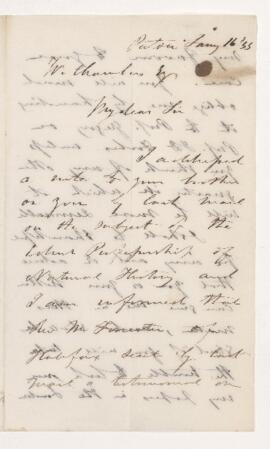 Pictou Jany 16/55
W Chambers Esq
My dear Sir
I addressed
a note to your brother
or you by last mail
on the subject of the
Edinr Professorship of
Natural History and
I am informed that
the
Halifax sent by last
mail a testimonial on